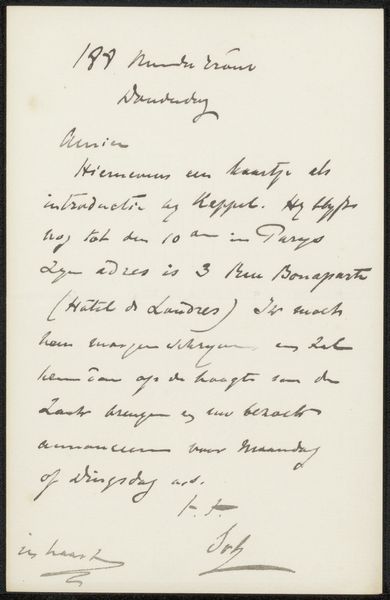 188
Donderdag
Amice
Hiernevens een kaartje als
introductie by Keppel. Hy blyft
nog tot den 10 en in Parys
Zyn adres is 3 Rue Bonaparte
(Hôtel de Londres) Ik moet
hem morgen schryven en zal
hem dan op de hoogte van de
Zaak brengen en uw bezoek
annonceeren voor Maandag
of Dingsdag a.s.
t. t.
in haast